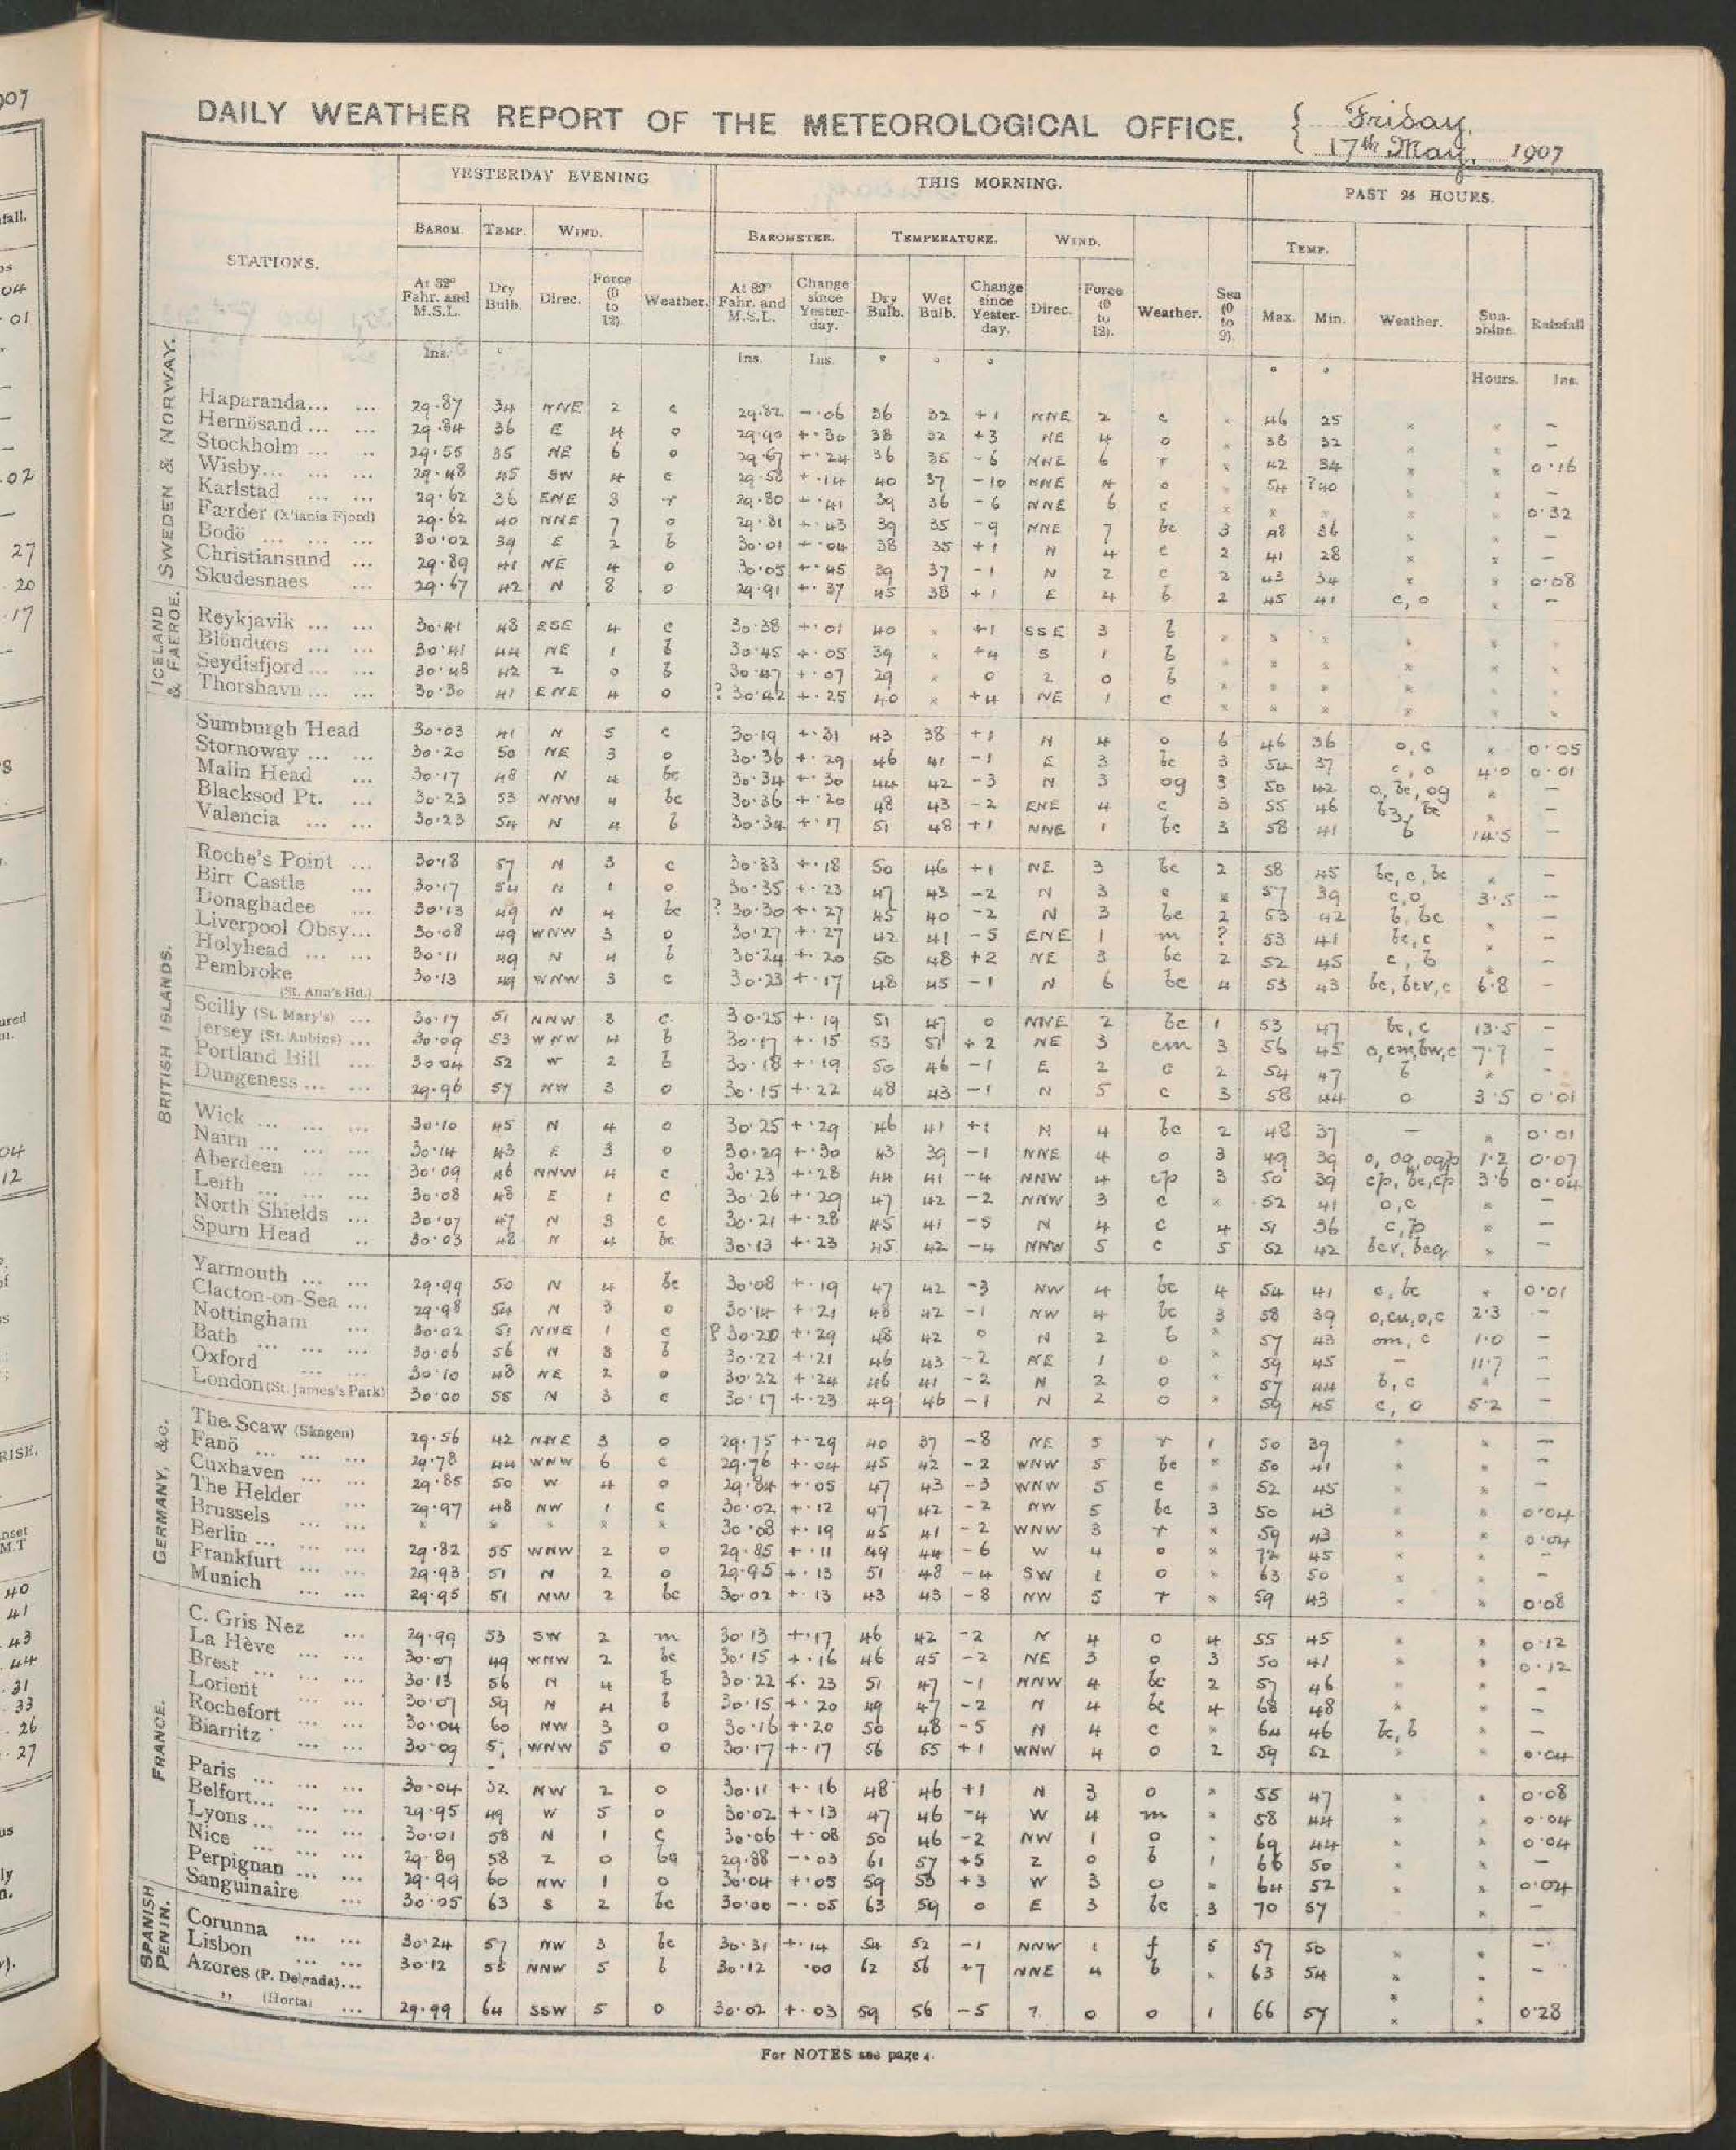 DAILY WEATHER REPORT OF THE METEOROLOGICAL OFFICE. { Friday, 17th May, 1907
YESTERDAY EVENING THIS MORNING. PAST 24 HOURS.
BAROM. TEMP. WIND. BAROMETER. TEMPERATURE. WIND. TEMP.
STATIONS. At 32° Fahr. and M.S.L. Dry Bulb. Direc. Force (0 to 12). Weather. At 32° Fahr. and M.S.L. Change since Yester-day. Dry Bulb. Wet Bulb. Change since Yester-day. Direc. Force (0 to 12). Weather. Sea (0 to 9). Max. Min. Weather. Sun-shine. Rainfall
Ins. ° Ins. Ins. ° ° ° ° ° Hours. Ins.
SWEDEN & NORWAY.
Haparanda... ... 29.87 34 NNE 2 c 29.82 -.06 36 32 +1 NNE 2 c × 46 25 × × —
Hernösand ... ... 29.84 36 E 4 o 29.90 +.30 38 32 +3 NE 4 o × 38 32 × × —
Stockholm ... ... 29.55 35 NE 6 o 29.67 +.24 36 35 -6 NNE 6 r × 42 34 × × 0.16
Wisby... ... ... 29.48 45 SW 4 c 29.58 +.14 40 37 -10 NNE 4 o × 54 ?40 × × —
Karlstad ... ... 29.62 36 ENE 3 r 29.80 +.41 39 36 -6 NNE 6 c × × × × × 0.32
Færder (X'iania Fjord) 29.62 40 NNE 7 o 29.81 +.43 39 35 -9 NNE 7 bc 3 48 36 × × —
Bodö ... ... ... 30.02 39 E 2 b 30.01 +.04 38 35 +1 N 4 c 2 41 28 × × —
Christiansund ... 29.89 41 NE 4 o 30.05 +.45 39 37 -1 N 2 c 2 43 34 × × 0.08
Skudesnaes ... 29.67 42 N 8 o 29.91 +.37 45 38 +1 E 4 b 2 45 41 c, o × —
ICELAND & FAEROE.
Reykjavik ... ... 30.41 48 ESE 4 c 30.38 +.01 40 × +1 SSE 3 b × × × × × ×
Blönduos ... ... 30.41 44 NE 1 b 30.45 +.05 39 × +4 S 1 b × × × × × ×
Seydisfjord ... ... 30.48 42 Z 0 b 30.47 +.07 29 × 0 Z 0 b × × × × × ×
Thorshavn ... ... 30.30 41 ENE 4 o ? 30.42 +.25 40 × +4 NE 1 c × × × × × ×
BRITISH ISLANDS.
Sumburgh Head 30.03 41 N 5 c 30.19 +.31 43 38 +1 N 4 o 6 46 36 o, c × 0.05
Stornoway ... ... 30.20 50 NE 3 o 30.36 +.29 46 41 -1 E 3 bc 3 54 37 c, o 4.0 0.01
Malin Head ... 30.17 48 N 4 bc 30.34 +.30 44 42 -3 N 3 og 3 50 42 o, bc, og × —
Blacksod Pt. ... 30.23 53 NNW 4 bc 30.36 +.20 48 43 -2 ENE 4 c 3 55 46 bz, bc × —
Valencia ... ... 30.23 54 N 4 b 30.34 +.17 51 48 +1 NNE 1 bc 3 58 41 b 14.5 —
Roche's Point ... 30.18 57 N 3 c 30.33 +.18 50 46 +1 NE 3 bc 2 58 45 bc, c, bc × —
Birr Castle ... 30.17 54 N 1 o 30.35 +.23 47 43 -2 N 3 c × 57 39 c, o 3.5 —
Donaghadee ... 30.13 49 N 4 bc ? 30.30 +.27 45 40 -2 N 3 bc 2 53 42 b, bc × —
Liverpool Obsy... 30.08 49 WNW 3 o 30.27 +.27 42 41 -5 ENE 1 m ? 53 41 bc, c × —
Holyhead ... ... 30.11 49 N 4 b 30.24 +.20 50 48 +2 NE 3 bc 2 52 45 c, b × —
Pembroke (St. Ann's Hd.) 30.13 49 WNW 3 c 30.23 +.17 48 45 -1 N 6 bc 4 53 43 bc, bcv, c 6.8 —
Scilly (St. Mary's) ... 30.17 51 NNW 3 c 30.25 +.19 51 47 0 NNE 2 bc 1 53 47 bc, c 13.5 —
Jersey (St. Aubins) ... 30.09 53 WNW 4 b 30.17 +.15 53 51 +2 NE 3 cm 3 56 45 o, cm, bw, c 7.7 —
Portland Bill ... 30.04 52 W 2 b 30.18 +.19 50 46 -1 E 2 c 2 54 47 b × —
Dungeness ... ... 29.96 57 NW 3 o 30.15 +.22 48 43 -1 N 5 c 3 58 44 o 3.5 0.01
Wick ... ... ... 30.10 45 N 4 o 30.25 +.29 46 41 +1 N 4 bc 2 48 37 — × 0.01
Nairn ... ... ... 30.14 43 E 3 o 30.29 +.30 43 39 -1 NNE 4 o 3 49 39 o, og, ogp 1.2 0.07
Aberdeen ... ... 30.09 46 NNW 4 c 30.23 +.28 44 41 -4 NNW 4 cp 3 50 39 cp, bc, cp 3.6 0.04
Leith ... ... ... 30.08 48 E 1 c 30.26 +.29 47 42 -2 NNW 3 c × 52 41 o, c × —
North Shields ... 30.07 47 N 3 c 30.21 +.28 45 41 -5 N 4 c 4 51 36 c, p × —
Spurn Head .. 30.03 48 N 4 bc 30.13 +.23 45 42 -4 NNW 5 c 5 52 42 bcv, bcq × —
Yarmouth ... ... 29.99 50 N 4 bc 30.08 +.19 47 42 -3 NW 4 bc 4 54 41 c, bc × 0.01
Clacton-on-Sea ... 29.98 54 N 3 o 30.14 +.21 48 42 -1 NW 4 bc 3 58 39 o, cu, o, c 2.3 —
Nottingham ... 30.02 51 NNE 1 c ? 30.20 +.29 48 42 0 N 2 b × 57 43 om, c 1.0 —
Bath ... ... ... 30.06 56 N 3 b 30.22 +.21 46 43 -2 NE 1 o × 59 45 — 11.7 —
Oxford ... ... 30.10 48 NE 2 o 30.22 +.24 46 41 -2 N 2 o × 57 44 b, c × —
London (St. James's Park) 30.00 55 N 3 c 30.17 +.23 49 46 -1 N 2 o × 59 45 c, o 5.2 —
GERMANY, &c.
The Scaw (Skagen) 29.56 42 NNE 3 o 29.75 +.29 40 37 -8 NE 5 r 1 50 39 × × —
Fanö ... ... ... 29.78 44 WNW 6 c 29.76 +.04 45 42 -2 WNW 5 bc × 50 41 × × —
Cuxhaven ... ... 29.85 50 W 4 o 29.84 +.05 47 43 -3 WNW 5 c × 52 45 × × —
The Helder ... 29.97 48 NW 1 c 30.02 +.12 47 42 -2 NW 5 bc 3 50 43 × × 0.04
Brussels ... ... × × × × × 30.08 +.19 45 41 -2 WNW 3 r × 59 43 × × 0.04
Berlin ... ... ... 29.82 55 WNW 2 o 29.85 +.11 49 44 -6 W 4 o × 72 45 × × —
Frankfurt ... ... 29.93 51 N 2 o 29.95 +.13 51 48 -4 SW 1 o × 63 50 × × —
Munich ... ... 29.95 51 NW 2 bc 30.02 +.13 43 43 -8 NW 5 r × 59 43 × × 0.08
FRANCE.
C. Gris Nez ... 29.99 53 SW 2 m 30.13 +.17 46 42 -2 N 4 o 4 55 45 × × 0.12
La Hève ... ... 30.07 49 WNW 2 bc 30.15 +.16 46 45 -2 NE 3 o 3 50 41 × × 0.12
Brest ... ... ... 30.13 56 N 4 b 30.22 +.23 51 47 -1 NNW 4 bc 2 57 46 × × —
Lorient ... ... 30.07 59 N 4 b 30.15 +.20 49 47 -2 N 4 bc 4 68 48 × × —
Rochefort ... ... 30.04 60 NW 3 o 30.16 +.20 50 48 -5 N 4 c × 64 46 bc, b × —
Biarritz ... ... 30.09 WNW 5 o 30.17 +.17 56 55 +1 WNW 4 o 2 59 52 × × 0.04
Paris ... ... ... 30.04 52 NW 2 o 30.11 +.16 48 46 +1 N 3 o × 55 47 × × 0.08
Belfort... ... ... 29.95 49 W 5 o 30.02 +.13 47 46 -4 W 4 m × 58 44 × × 0.04
Lyons ... ... ... 30.01 58 N 1 c 30.06 +.08 50 46 -2 NW 1 o × 69 44 × × 0.04
Nice ... ... ... 29.89 58 Z 0 bq 29.88 -.03 61 57 +5 Z 0 b 1 66 50 × × —
Perpignan ... ... 29.99 60 NW 1 o 30.04 +.05 59 53 +3 W 3 o × 64 52 × × 0.04
Sanguinaire ... 30.05 63 S 2 bc 30.00 -.05 63 59 0 E 3 bc 3 70 57 × —
SPANISH PENIN.
Corunna ... ... 30.24 57 NW 3 bc 30.31 +.14 54 52 -1 NNW 1 f 5 57 50 × × —
Lisbon ... ... 30.12 55 NNW 5 b 30.12 .00 62 56 +7 NNE 4 b × 63 54 × × —
Azores (P. Delgada)... × ×
,, (Horta) ... 29.99 64 SSW 5 o 30.02 +.03 59 56 -5 Z. 0 o 1 66 57 × × 0.28
For NOTES see page 4.
907
fall.
04
01
.02
27
20
.17
8
ured
04
12
RISE.
nset
M.T
40
41
43
44
.31
33
.26
.27
us
ly